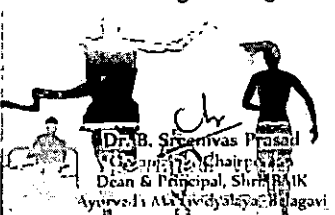 Dr. B. Sreenivas Prasad
Chairperson
Dean & Principal, Shri BMK
Ayurveda Mahavidyalaya, Belagavi